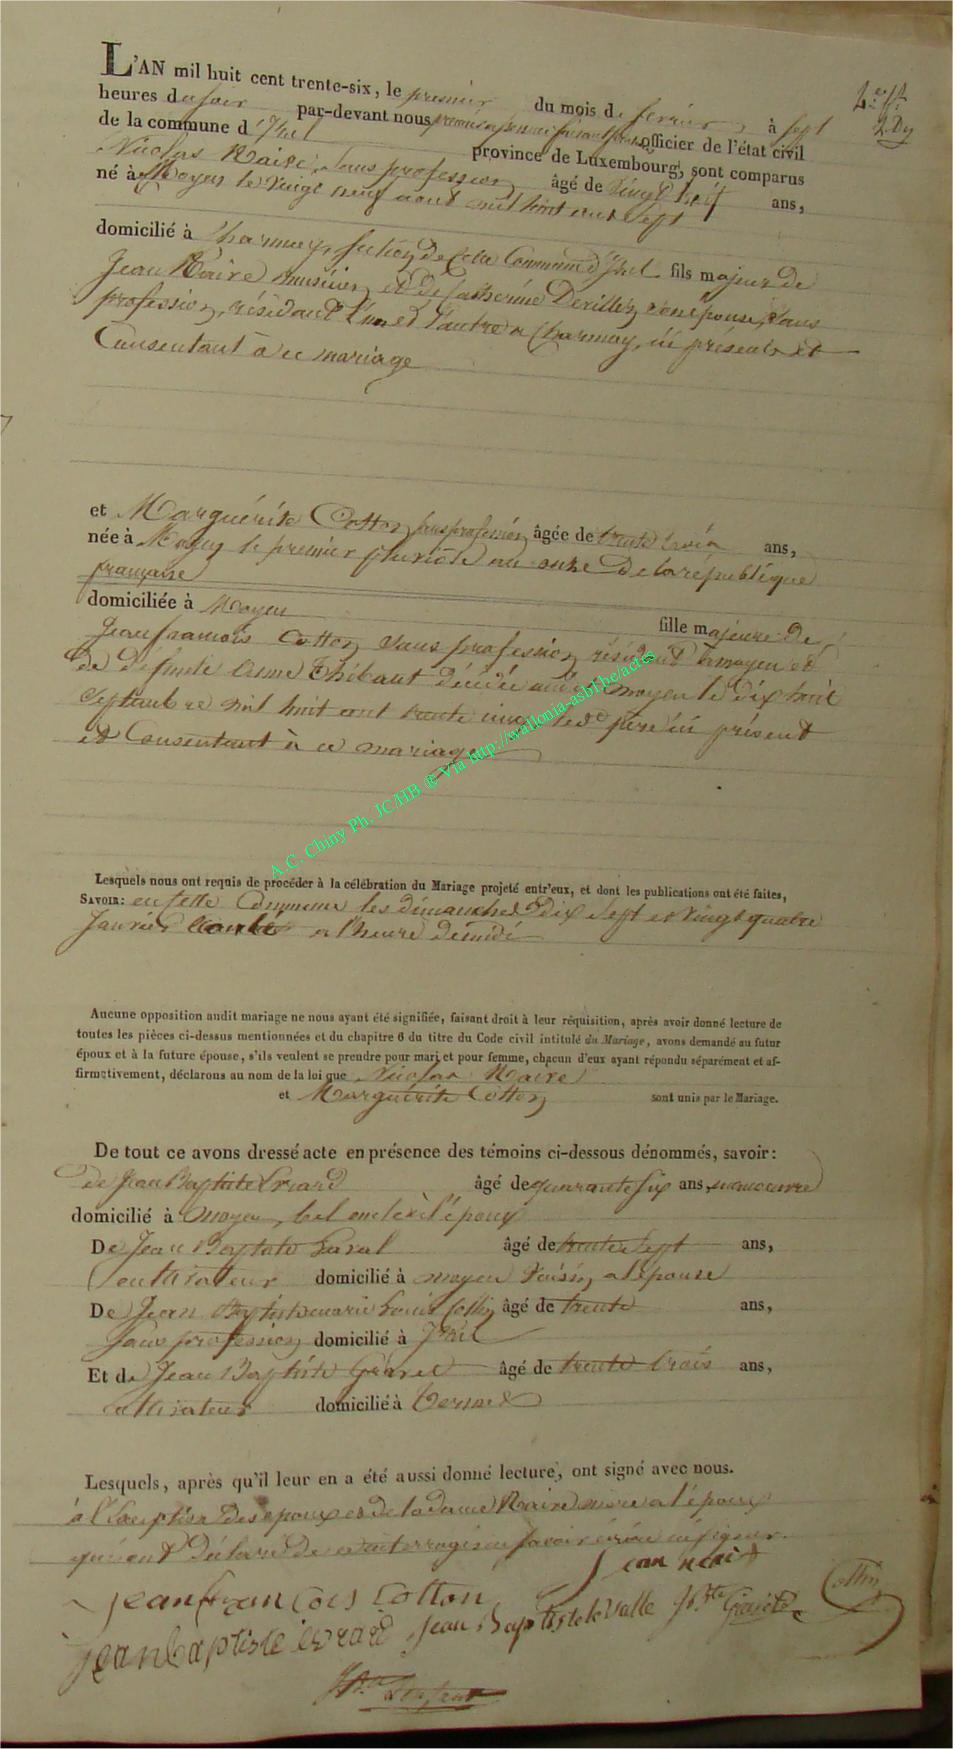 L'AN mil huit cent trente-six, le premier du mois de fevrier, à sept
heures du soir par-devant nous officier de l'état civil
de la commune d'Izel province de Luxembourg, sont comparus
Nicolas Naire, sans profession âgé de vingt huit ans,
né à Moyen le vingt neuf aout mil huit cent sept
domicilié à Charmoy, section de cette Commune d'Izel fils majeur de
Jean Naire musicien et de Catherine Devillez son épouse, sans
profession, résidant l'un et l'autre a Charmoy, ici présents et
Consentant à ce mariage
et Marguérite Cotton sans profession âgée de trente trois ans,
née à Moyen le premier pluviose an onze de la république
française
domiciliée à Moyen fille majeure de
Jean francois Cotton sans profession résidant a moyen et
de défunte Anne Thibaut décédée audit moyen le dix huit
Septembre mil huit cent trente cinq, led père ici présent
et Consentant à ce mariage
A.C. Chiny Ph. JC/HB ® Via http://wallonia-asbl.be/actes
Lesquels nous ont requis de procéder à la célébration du Mariage projeté entr'eux, et dont les publications ont été faites,
SAVOIR: en cette Commune les dimanches dix sept et vingt quatre
Janvier a l'heure de midi
Aucune opposition audit mariage ne nous ayant été signifiée, faisant droit à leur réquisition, après avoir donné lecture de
toutes les pièces ci-dessus mentionnées et du chapitre 6 du titre du Code civil intitulé du Mariage, avons demandé au futur
époux et à la future épouse, s'ils veulent se prendre pour mari et pour femme, chacun d'eux ayant répondu séparément et af-
firmativement, déclarons au nom de la loi que Nicolas Naire
et Marguérite Cotton sont unis par le Mariage.
De tout ce avons dressé acte en présence des témoins ci-dessous dénommés, savoir:
de Jean Baptiste Evrard âgé de quarante six ans, manoeuvre
domicilié à moyen, bel oncle à l'époux
De Jean Baptiste Laval âgé de trente Sept ans,
Cultivateur domicilié à moyen Voisin a l'épouse
De Jean Baptiste marie Louis Collin âgé de trente ans,
Sans profession domicilié à Izel
Et de Jean Baptiste âgé de trente trois ans,
cultivateur domicilié à
Lesquels, après qu'il leur en a été aussi donné lecture, ont signé avec nous.
à l'Exception des epoux et de la dame Naire mère a l'époux
qui ont Déclaré de ce interrogés ne savoir écrire ni signer.
Jean nair
Jean françois Cotton Collin
Jean baptiste evrard Jean Baptiste